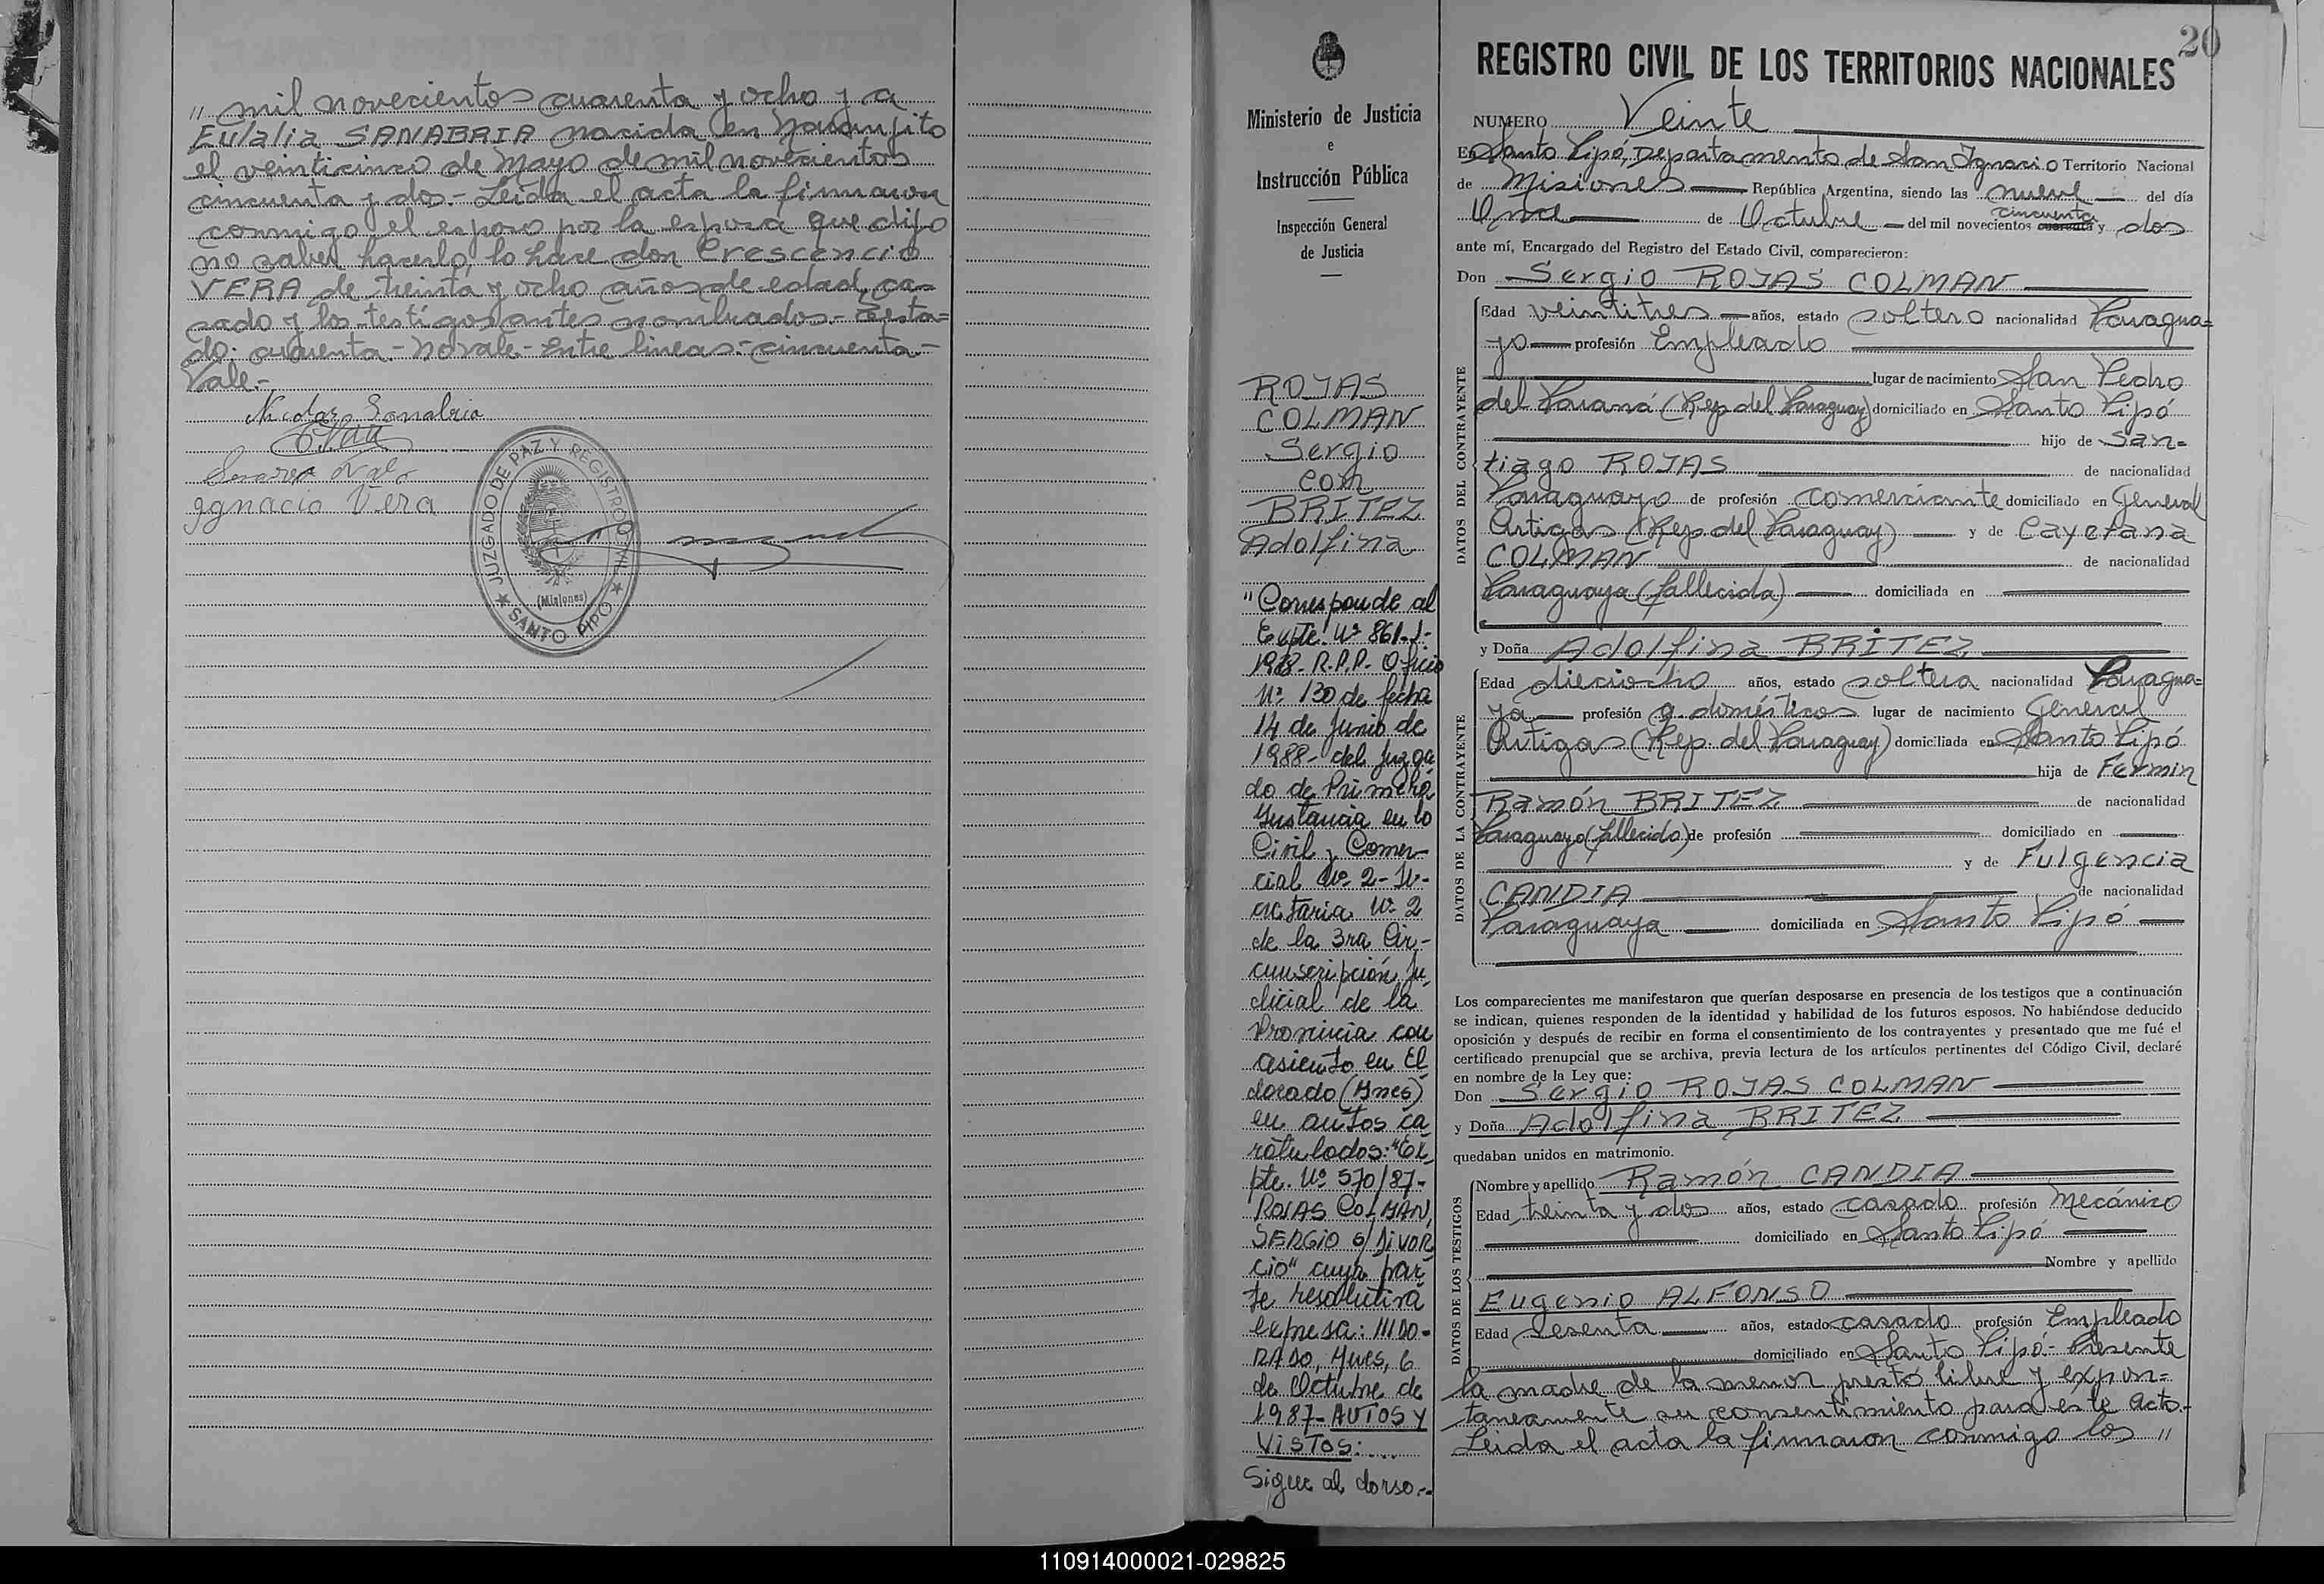 " mil novecientos cuarenta y ocho y a
Eulalia SANABRIA nacida en Naranjito
el veinticinco de Mayo de mil novecientos
cincuenta y dos.- Leida el acta la firmaron
conmigo el esposo por la esposa que dijo
no saber hacerlo lo hace don Crescencio
VERA de treinta y ocho años de edad, ca-
sado y los testigos antes nombrados.- Testa=
do: cuarenta - No vale - Entre lineas:- cincuenta.-
Vale.-
Nicolas Sanabria
Ignacio Vera
JUZGADO DE PAZ Y REGISTRO CIVIL
(Misiones)
★ SANTO PIPÓ ★
Ministerio de Justicia
e
Instrucción Pública
Inspección General
de Justicia
ROJAS
COLMAN
Sergio
con
BRITEZ
Adolfina
"Corresponde al
Expte. Nº 861-J-
1988- R.P.P. Oficio
Nº 130 de fecha
14 de Junio de
1988- del Juzga
do de Primera
Instancia en lo
Civil y Comer-
cial Nº 2- Se-
cretaria Nº 2
de la 3ra Cir-
cunscripción Ju
dicial de la
Provincia con
asiento en El
dorado (Mnes)
en autos ca
ratulados: "Ex
pte. Nº 570/87-
ROJAS COLMAN,
SERGIO s/ DIVOR
CIO" cuya par
te resolutiva
expresa: ElDO-
RADO, Mnes, 6
de Octubre de
1987- AUTOS Y
VISTOS: ....
Sigue al dorso.-
20
REGISTRO CIVIL DE LOS TERRITORIOS NACIONALES
NUMERO Veinte
En Santo Pipó, Departamento de San Ignacio Territorio Nacional
de Misiones República Argentina, siendo las nueve del día
Once de Octubre del mil novecientos cuarenta cincuenta y dos
ante mí, Encargado del Registro del Estado Civil, comparecieron:
Don Sergio ROJAS COLMAN
DATOS DEL CONTRAYENTE
Edad veintitres años, estado soltero nacionalidad Paragua=
yo profesión Empleado
lugar de nacimiento San Pedro
del Paraná (Rep. del Paraguay) domiciliado en Santo Pipó
hijo de San=
tiago ROJAS de nacionalidad
Paraguayo de profesión comerciante domiciliado en General
Artigas (Rep. del Paraguay) y de Cayetana
COLMAN de nacionalidad
Paraguaya (fallecida) domiciliada en
y Doña Adolfina BRITEZ
DATOS DE LA CONTRAYENTE
Edad dieciocho años, estado soltera nacionalidad Paragua=
ya profesión q. domésticos lugar de nacimiento General
Artigas (Rep. del Paraguay) domiciliada en Santo Pipó
hija de Fermin
Ramón BRITEZ de nacionalidad
Paraguayo (fallecido) de profesión domiciliado en
y de Fulgencia
CANDIA de nacionalidad
Paraguaya domiciliada en Santo Pipó
Los comparecientes me manifestaron que querían desposarse en presencia de los testigos que a continuación
se indican, quienes responden de la identidad y habilidad de los futuros esposos. No habiéndose deducido
oposición y después de recibir en forma el consentimiento de los contrayentes y presentado que me fué el
certificado prenupcial que se archiva, previa lectura de los artículos pertinentes del Código Civil, declaré
en nombre de la Ley que:
Don Sergio ROJAS COLMAN
y Doña Adolfina BRITEZ
quedaban unidos en matrimonio.
DATOS DE LOS TESTIGOS
Nombre y apellido Ramón CANDIA
Edad treinta y dos años, estado casado profesión Mecánico
domiciliado en Santo Pipó
Nombre y apellido
Eugenio ALFONSO
Edad sesenta años, estado casado profesión Empleado
domiciliado en Santo Pipó.- Presente
la madre de la menor prestó libre y expon=
taneamente su consentimiento para este acto.-
Leida el acta la firmaron conmigo los "
110914000021-029825